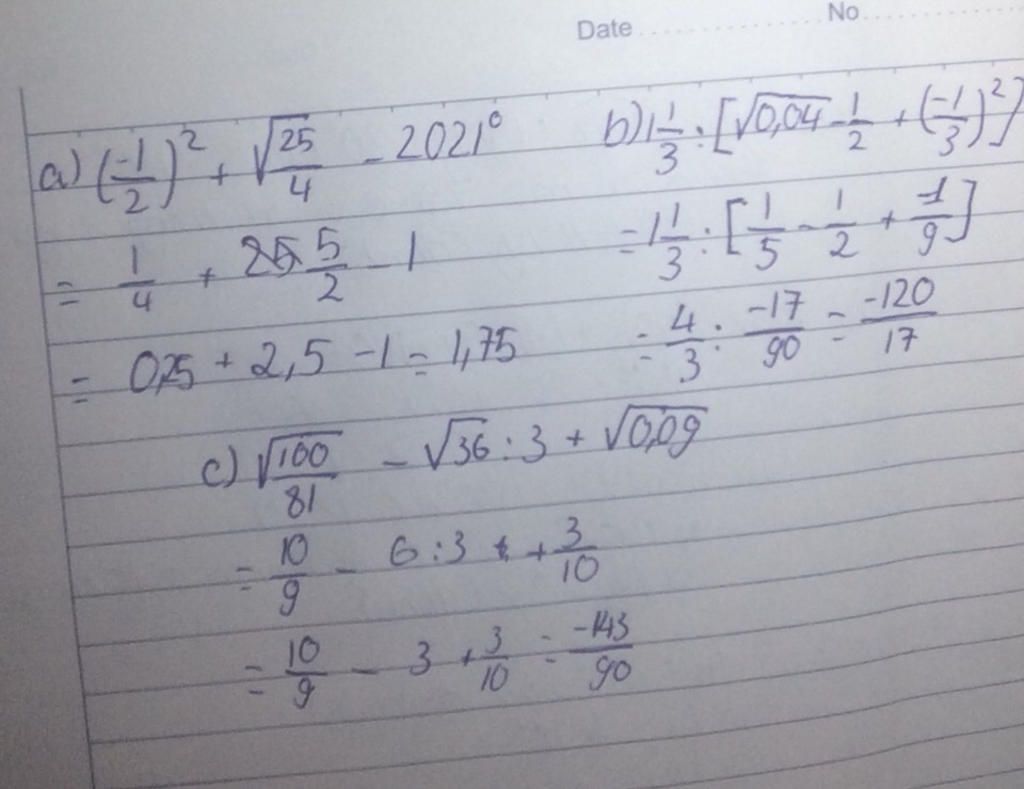 Date No
a) (-1/2)² + √25/4 - 2021⁰
= 1/4 + 5/2 - 1
= 0,25 + 2,5 - 1 = 1,75
b) 1 1/3 : [√0,04 - 1/2 + (-1/3)²]
= 1 1/3 : [1/5 - 1/2 + 1/9]
= 4/3 : -17/90 = -120/17
c) √100/81 - √36 : 3 + √0,09
= 10/9 - 6 : 3 + 3/10
= 10/9 - 3 + 3/10 = -143/90